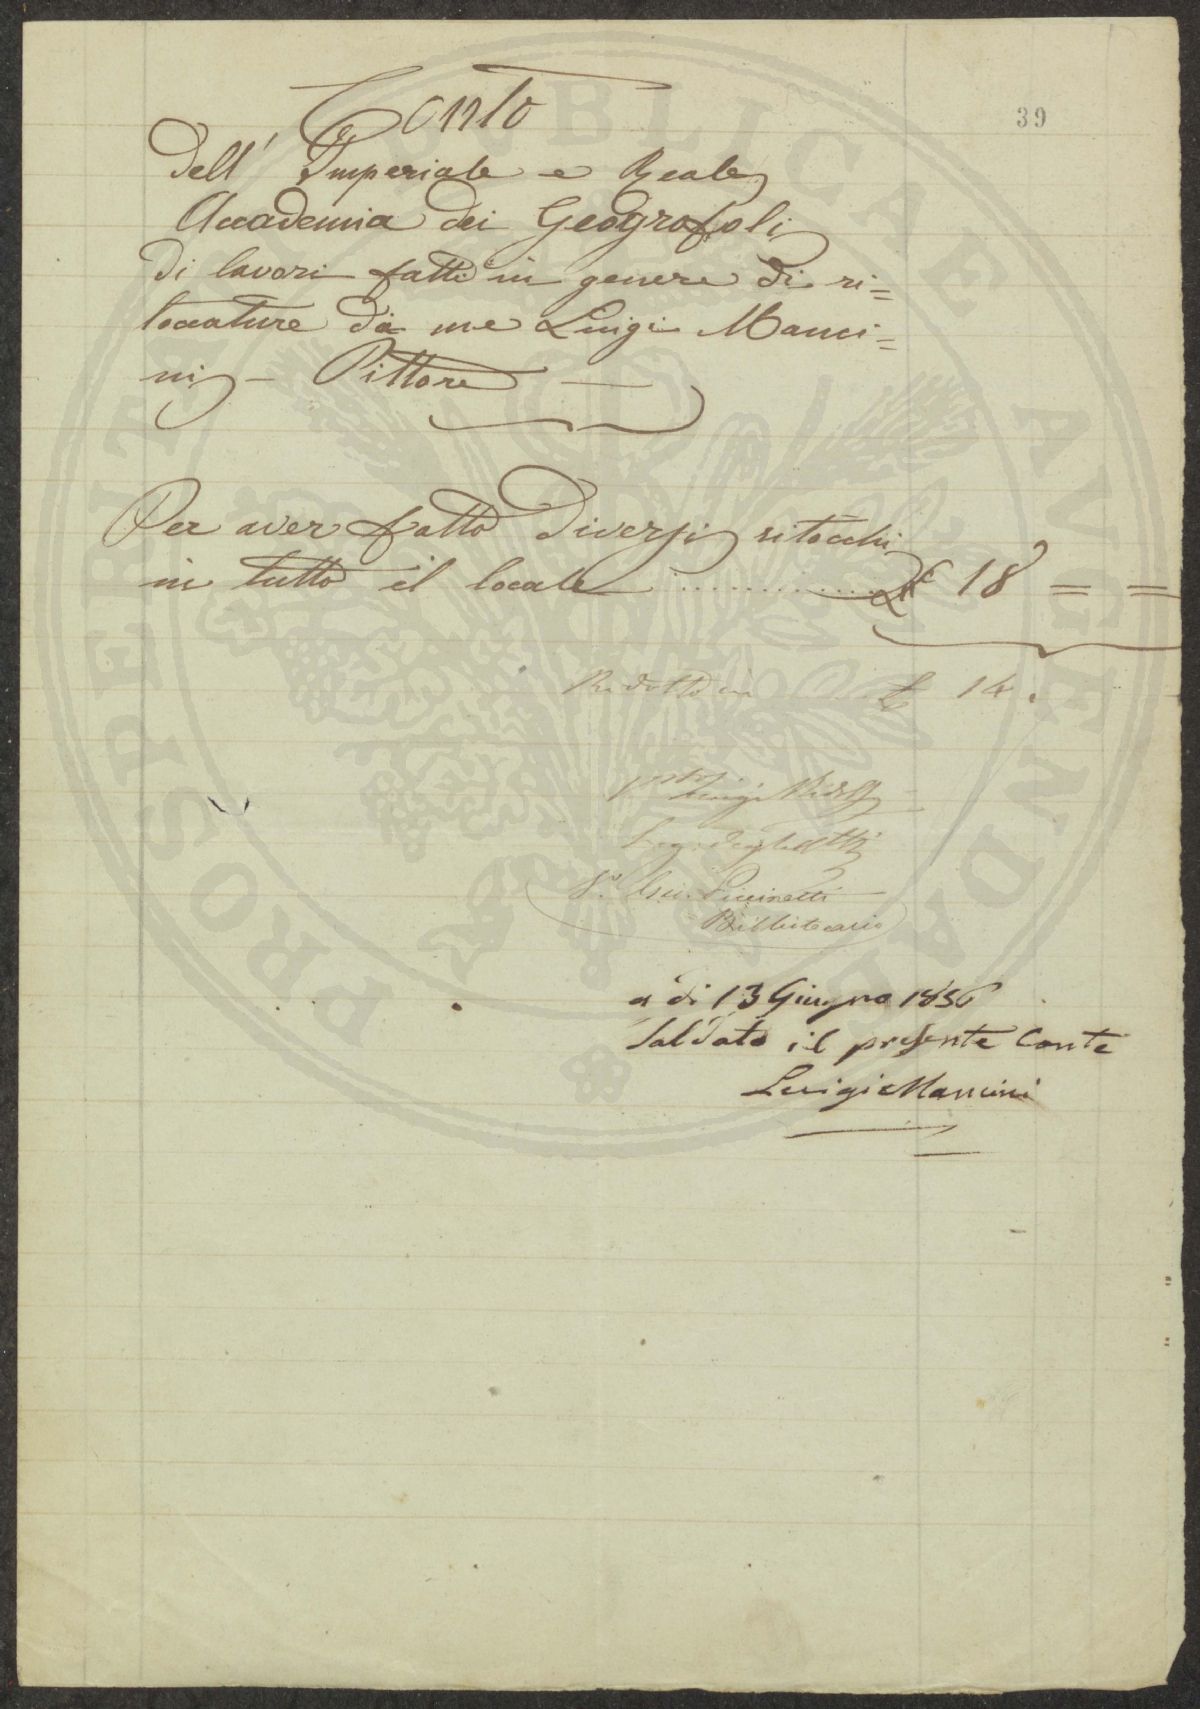 39
Conto
Dell' Imperiale e Reale
Accademia dei Geogrofoli
Di lavori fatti in genere di ri=
toccature da me Luigi Manci=
ni - Pittore
Per aver fatto diversi ritocchi
in tutto il locale ............ £ 18 = =
Ridotto in £ 14.
Luigi Ridolfi
Piccinetti
Bibliotecario
a dì 13 Giugno 1856
Saldato il presente Conte
Luigi Mancini
PROSPERITATI PUBLICAE AUGENDAE